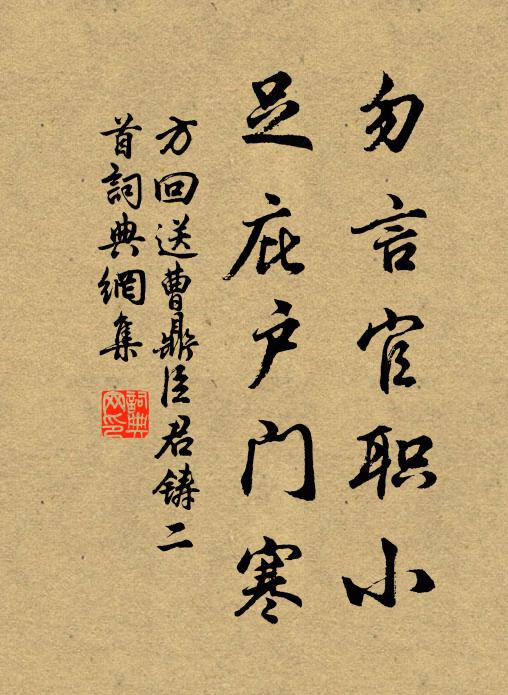 勿言官职小
足庇户门寒
方回送曹鼎臣君铸二
首詞典網集
詞典网印